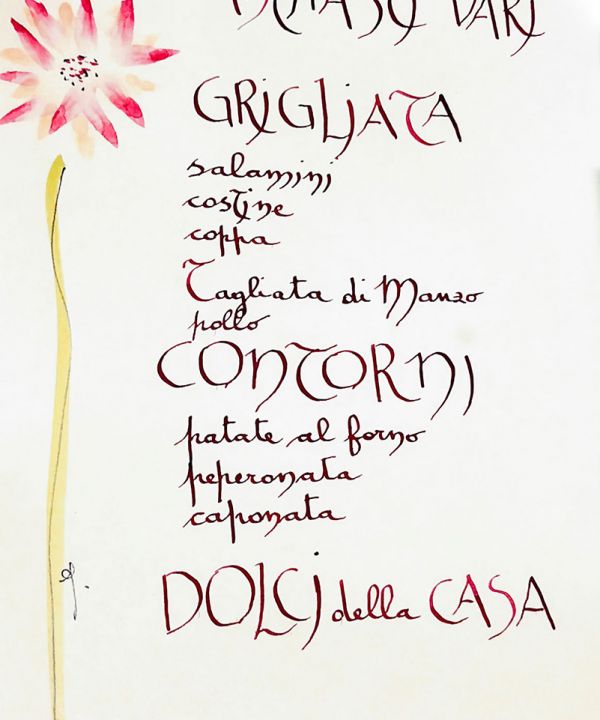 VARI
GRIGLIATA
salamini
costine
coppa
Tagliata di Manzo
pollo
CONTORNI
patate al forno
peperonata
caponata
DOLCI della CASA